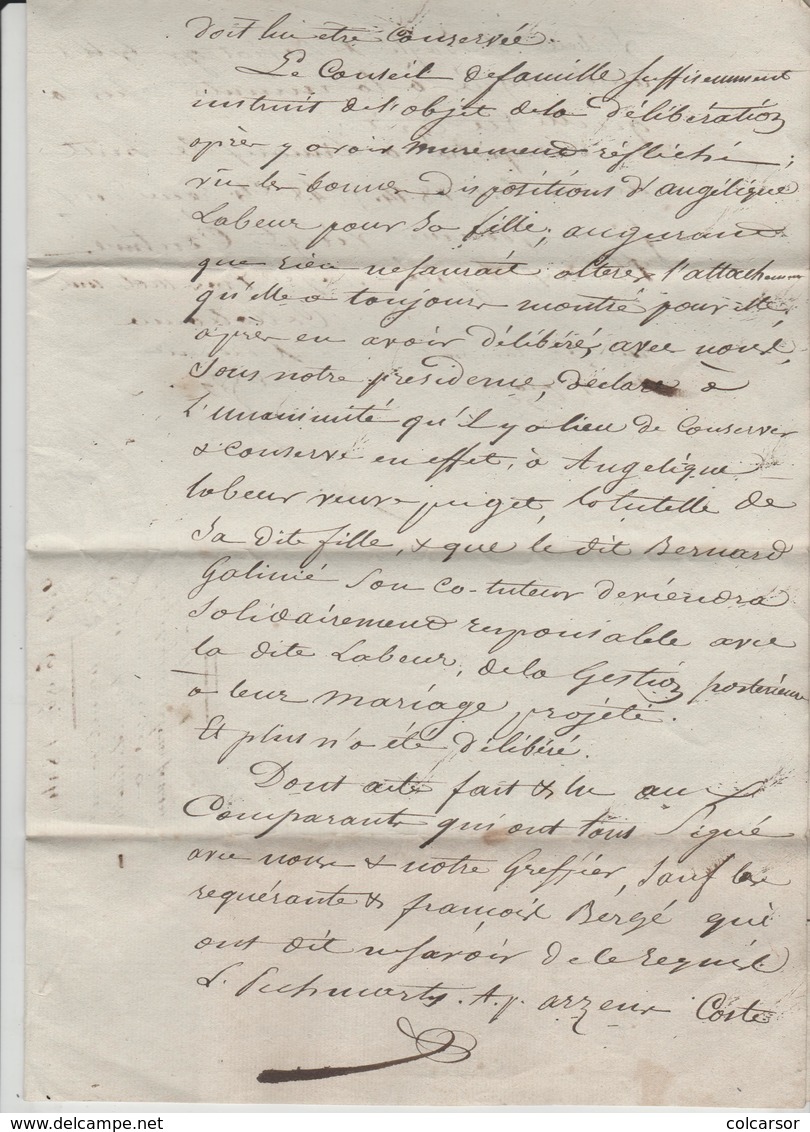 doit lui etre conservée.
Le Conseil de famille suffisemment
instruit de l'objet de la délibération
après y avoir murement réfléchi ;
vu les bonnes dispositions d'angélique
Labeur pour sa fille, augurant
que rien ne saurait altérer l'attachement
qu'elle a toujours montré pour elle,
après en avoir délibéré, avec nous,
sous notre presidence, déclare à
L'unanimité qu'il y a lieu de conserver
& conserve en effet, à Angelique
labeur veuve puget, la tutelle de
sa dite fille, & que le dit Bernard
Galinié son co-tuteur deviendra
solidairement responsable avec
la dite Labeur, de la Gestion postérieure
à leur mariage projeté.
Et plus n'a été délibéré.
Dont acte fait & lu aux
Comparants qui ont tous signé
avec nous & notre Greffier, sauf la
requérante & françois Bergé qui
ont dit ne savoir de ce requis.
A. p. arzeux Coste
colcarsor